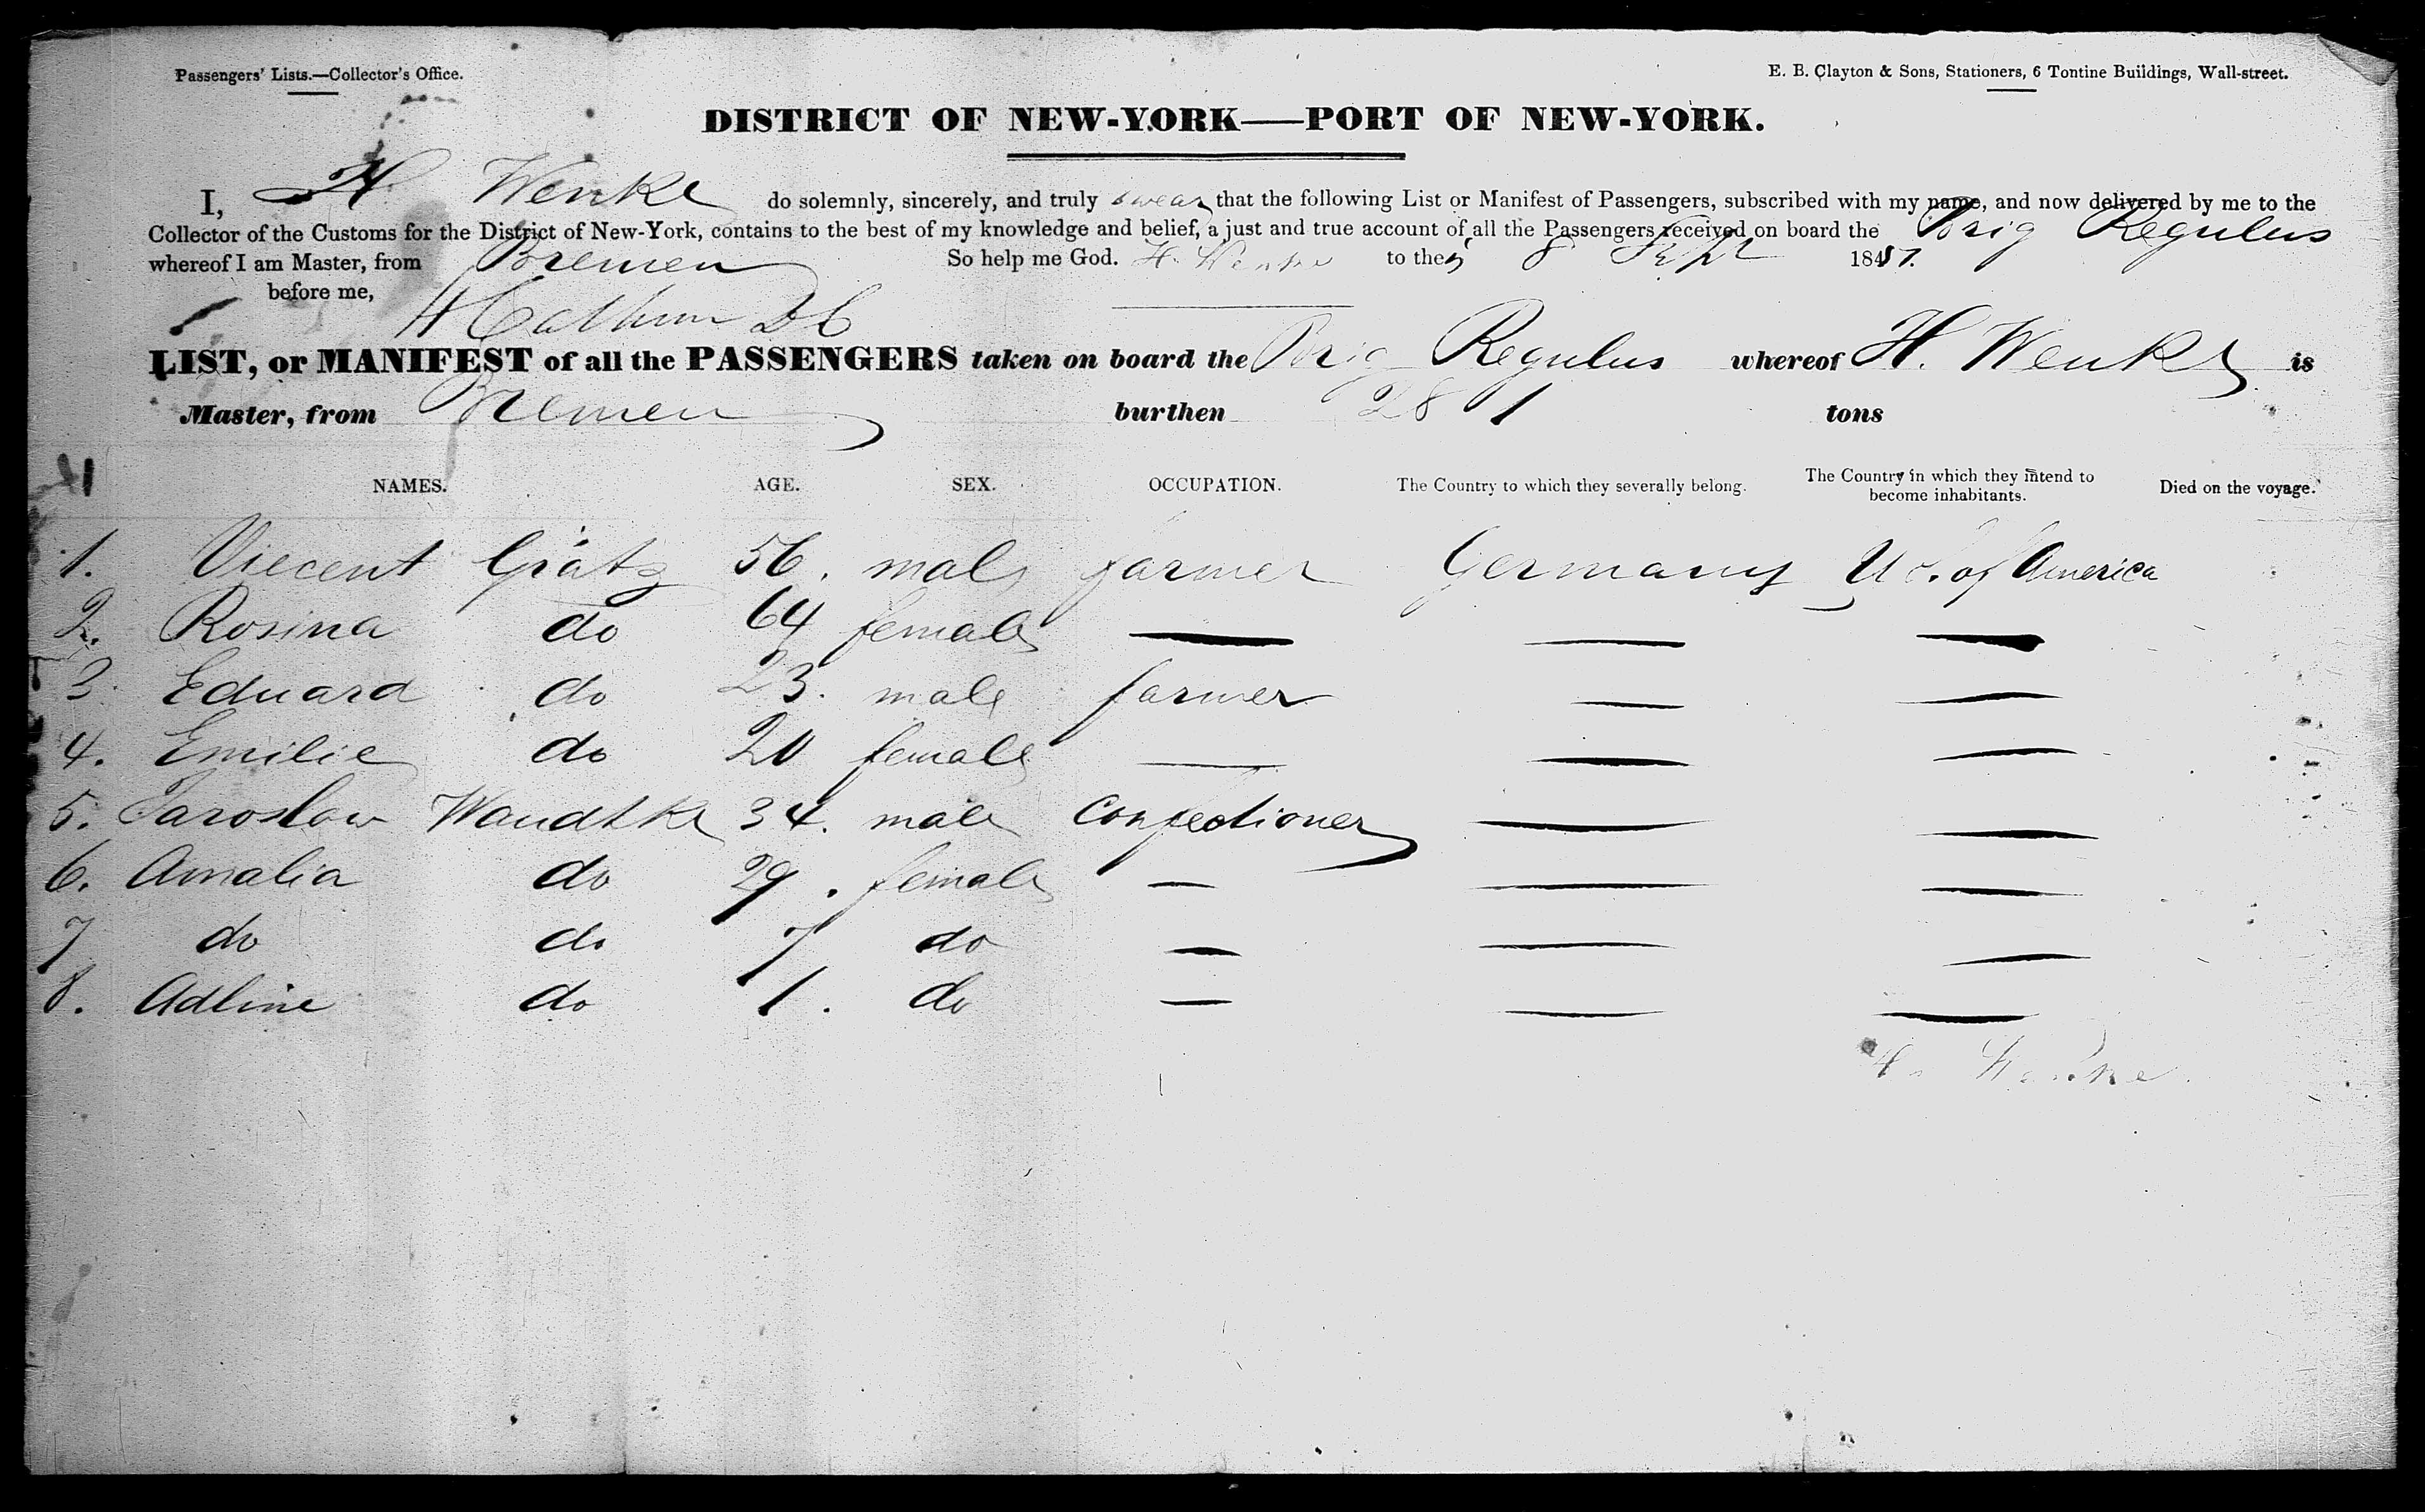 Passengers' Lists.—Collector's Office.
E. B. Clayton & Sons, Stationers, 6 Tontine Buildings, Wall-street.
DISTRICT OF NEW-YORK——PORT OF NEW-YORK.
I, H Wenke do solemnly, sincerely, and truly swear that the following List or Manifest of Passengers, subscribed with my name, and now delivered by me to the
Collector of the Customs for the District of New-York, contains to the best of my knowledge and belief, a just and true account of all the Passengers received on board the Brig Regulus
whereof I am Master, from Bremen So help me God. H. Wenke to the 8 Sept 184
before me,
LIST, or MANIFEST of all the PASSENGERS taken on board the Brig Regulus whereof H. Wenke is
Master, from Bremen burthen 281 tons
NAMES. AGE. SEX. OCCUPATION. The Country to which they severally belong. The Country in which they intend to become inhabitants. Died on the voyage.
1. Viecent Grätz 56. male farmer Germany U S. of America
2. Rosina do 64 female — — —
3. Eduard do 23. male farmer — —
4. Emilie do 20 female — — —
5. Jaroslaw Wandtke 34. male confectioner — —
6. Amalia do 29. female — — —
7 do do 7 do — — —
8. Adline do 1. do — — —
H. Wenke